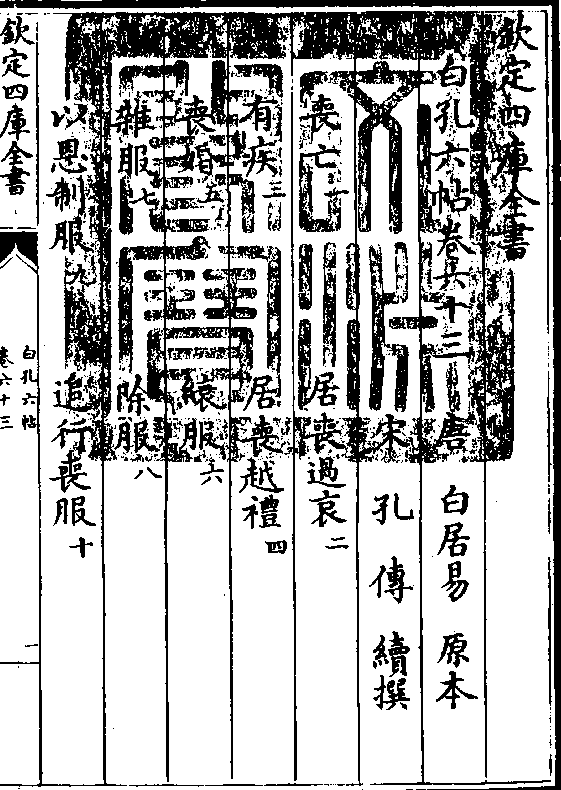 欽定四庫全書
白孔六帖卷六十三 唐 白居易 原本
宋 孔傳 續撰
喪亡一 居喪過哀二
有疾三 居喪越禮四
喪婚五 縗服六
雜服七 除服八
以恩制服九 追行喪服十
欽定四庫全書
白孔六帖
卷六十三
一